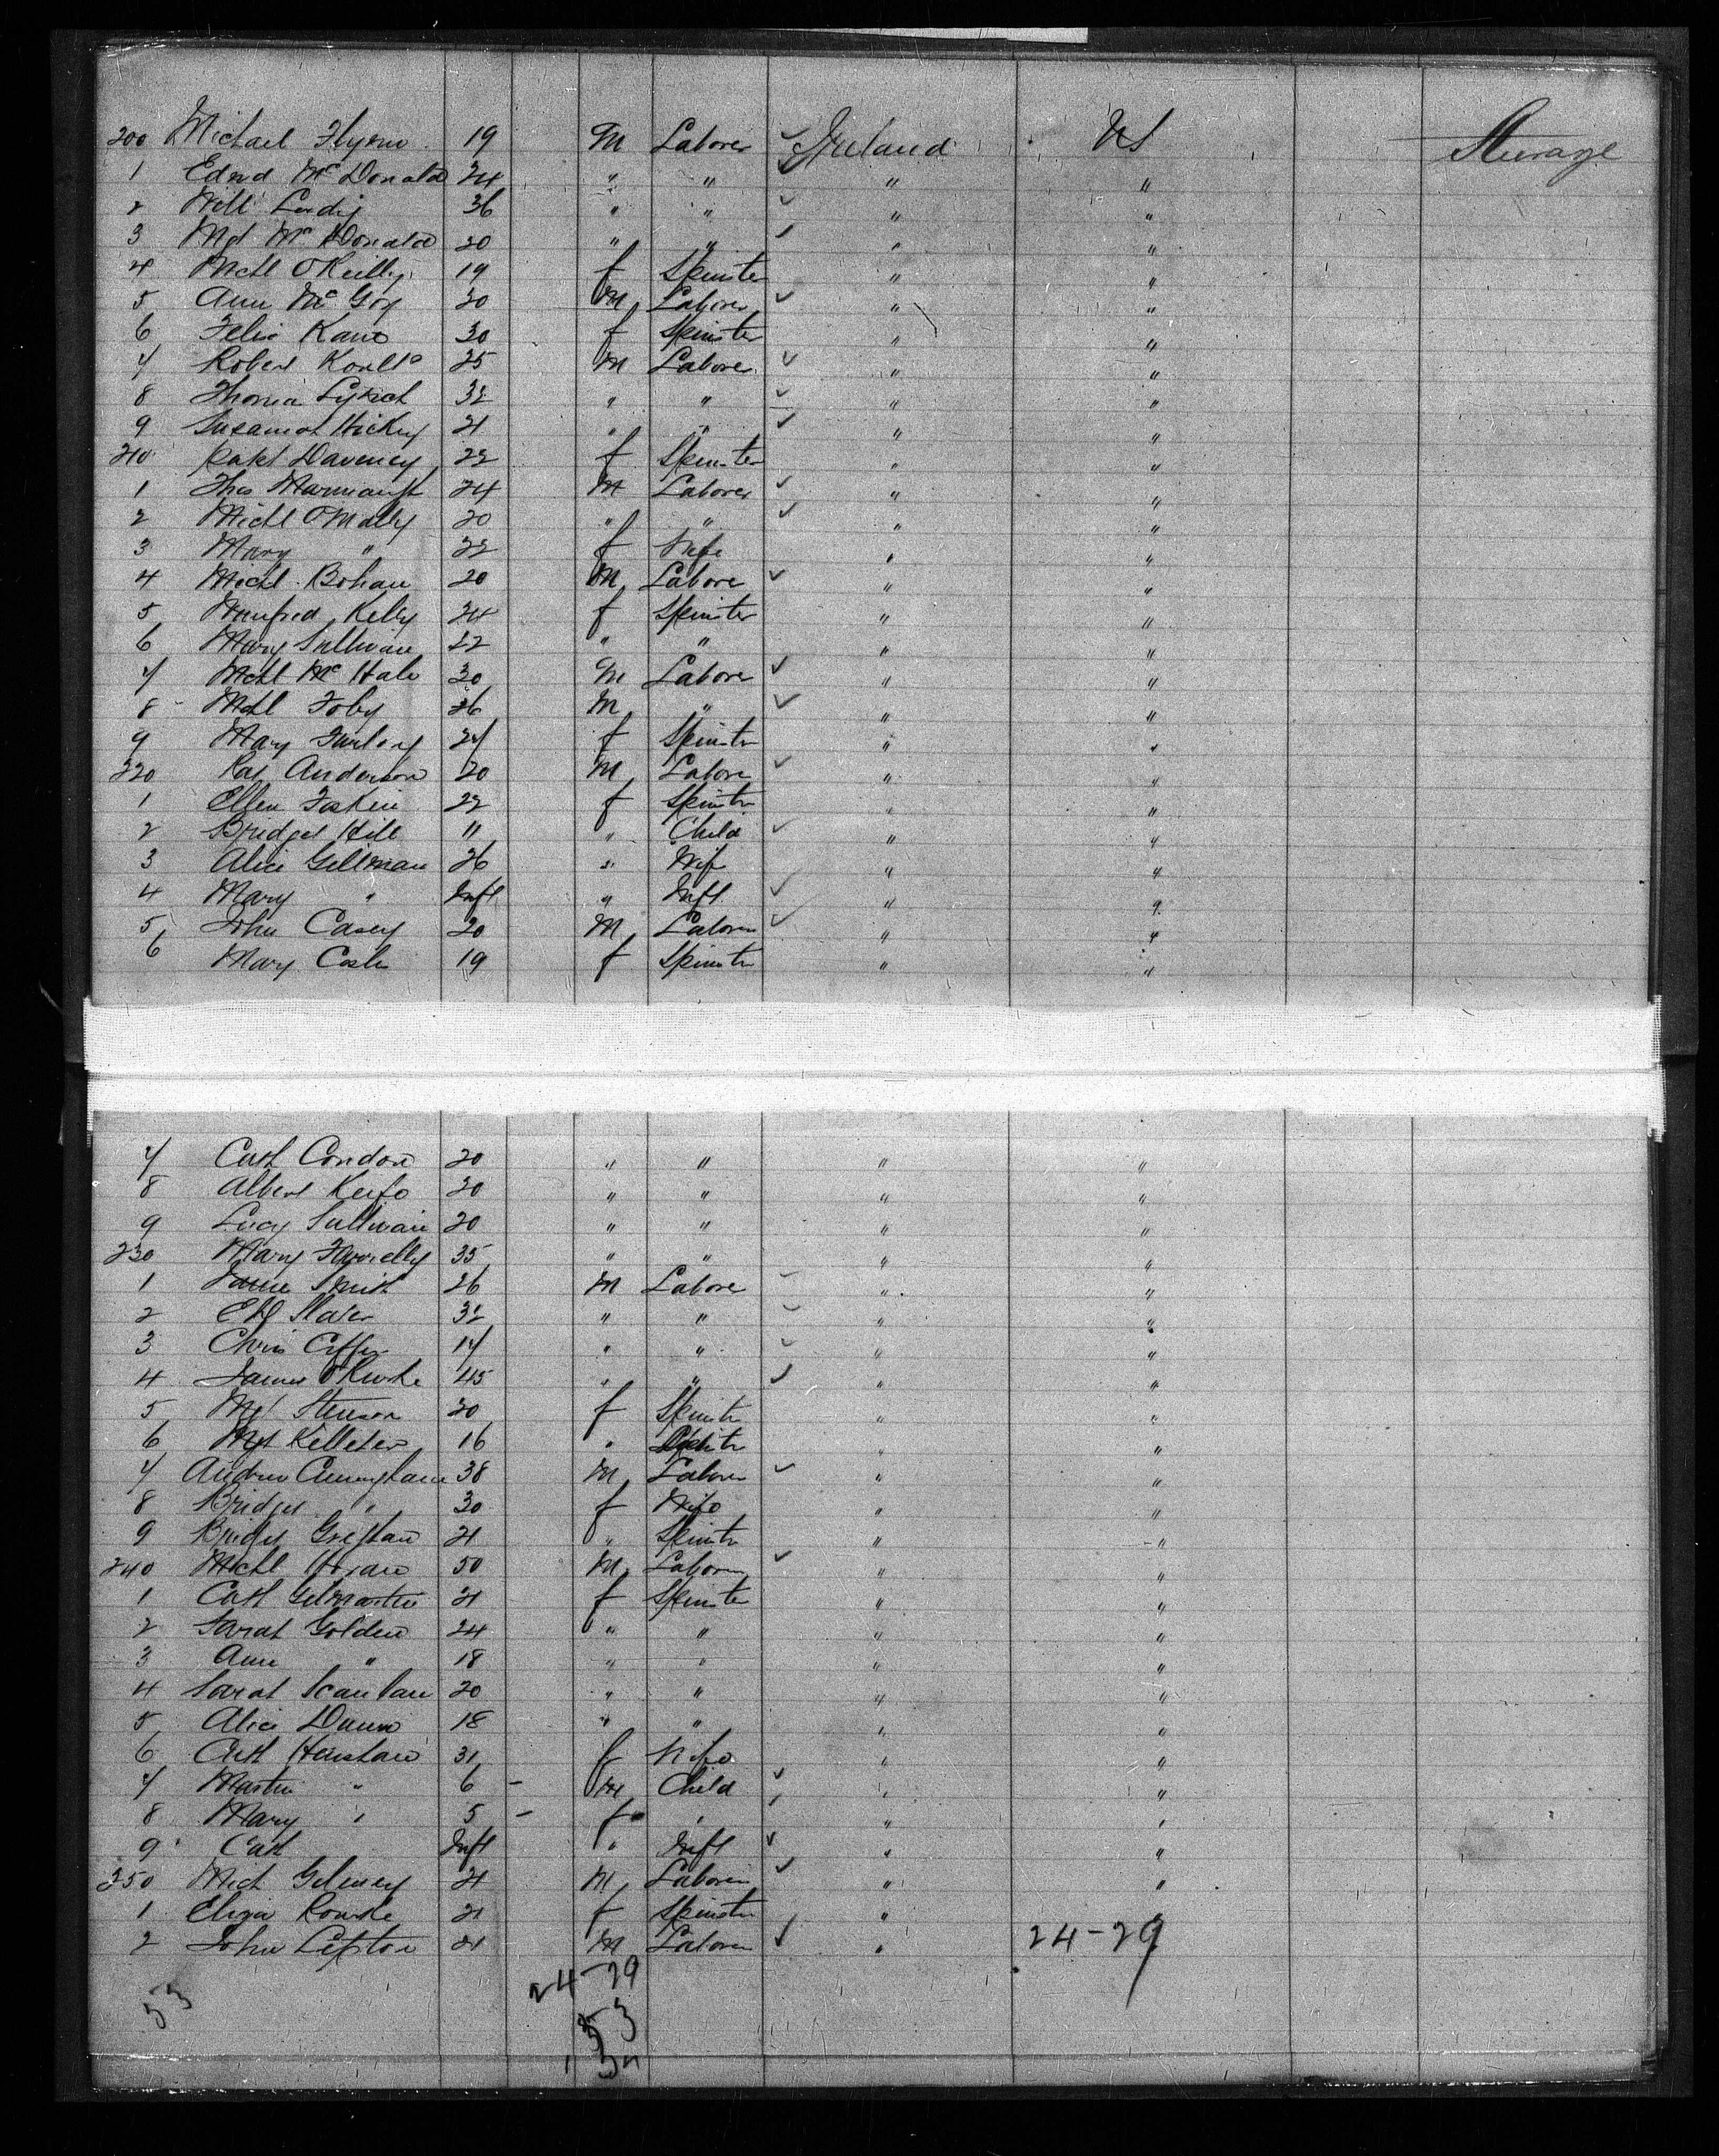 200 Michael Flynn 19 M Laborer Ireland US Steerage
1 Edwd McDonald 24 " " " "
2 Will 36 " " " "
3 Mgt McDonald 20 " " " "
4 Michl OReilly 19 f Spinster " "
5 Ann McGoy 20 M Laborer " "
6 Felix Kane 30 f Spinster " "
7 Robert 25 M Laborer " "
8 Lynch 32 " " " "
9 Hickey 21 " " " "
210 Daveney 22 f Spinster " "
1 Thos 24 M Laborer " "
2 Michl OMally 20 " " " "
3 Mary " 22 f Wife " "
4 Michl Bohan 20 M Labore " "
5 Winifred Kelly 24 f Spinster " "
6 Mary Sullivan 22 " " " "
7 Michl McHale 30 M Laborer " "
8 Michl Foby 26 M " " "
9 Mary Furlong f Spinstr " "
220 Pat Anderson 20 M Labore " "
1 Ellen 22 f Spinstr " "
2 Bridget Hill 11 " Child " "
3 Alice Gillman 26 " Wife " "
4 Mary " Inft " Inft " "
5 John Casey 20 M Laborer " "
6 Mary 19 f Spinstr " "
7 Cath Condon 20 " " " "
8 Albert Keefe 20 " " " "
9 Lucy Sullivan 20 " " " "
230 Mary Farrelly 35 " " " "
1 Smith 26 M Laborer " "
2 Slater 32 " " " "
3 Chris 17 " " " "
4 James ORurke 45 " " " "
5 Mgt Stenson 20 f Spinstr " "
6 Mgt Kelleher 16 " " "
7 Andrew Cunningham 38 M Laborer " "
8 Bridget " 30 f Wife " "
9 Bridget 21 " Spinstr " "
240 Michl Horan 50 M Laborer " "
1 Cath Gilmartin 21 f Spinster " "
2 Sarah Golden 24 " " " "
3 Ann " 18 " " " "
4 Sarah Scanlan 20 " " " "
5 Alice Dunn 18 " " " "
6 Cath 31 f Wife " "
7 Martin " 6 - M Child " "
8 Mary " 5 - f " " "
9 Cath Inft " Inft " "
250 Mich 21 M Laborer " "
1 Eliza Rourke 21 f Spinstr " "
2 John 21 M Laborer " 24-29
24-29
53
53